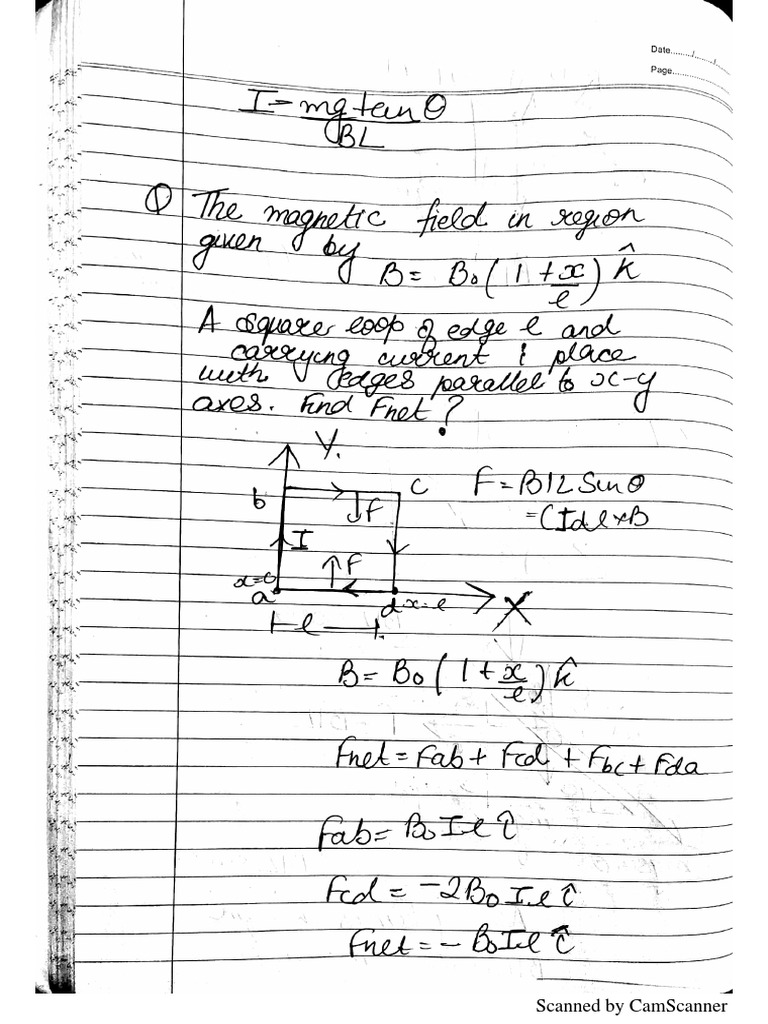 Date......../......./.......
Page..................
I = mg tan θ
BL
Q The magnetic field in region
given by
B = B₀ ( 1 + x/l ) k̂
A square loop of edge l and
carrying current i place
with edges parallel to x-y
axes. Find Fnet?
Y.
b
c
F = BIL Sin θ
F
= (Idl × B
I
F
x=0
a
d x=l
X
l
B = B₀ ( 1 + x/l ) k̂
Fnet = Fab + Fcd + Fbc + Fda
Fab = B₀Il î
Fcd = -2B₀Il î
Fnet = - B₀Il î
Scanned by CamScanner